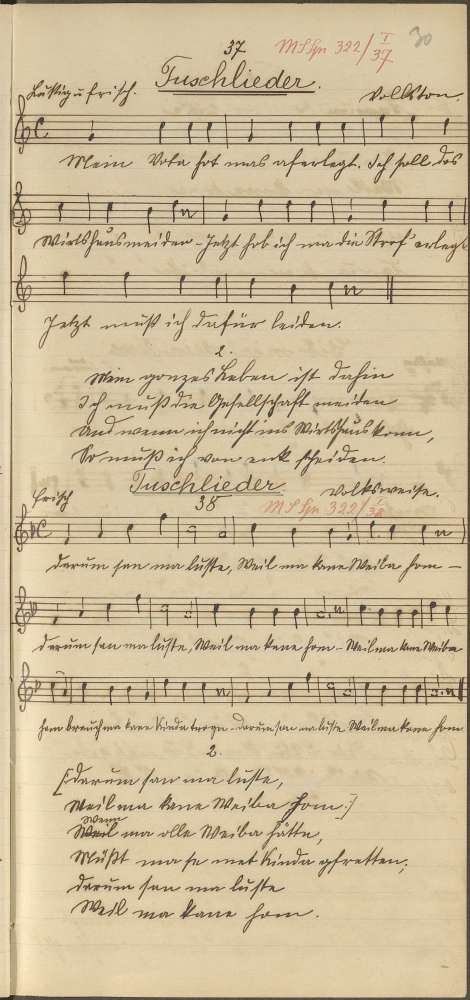 37.
MS Spn 322/I
37
30
Tuschlieder.
Lustig u frisch.
Volkston.
Mein Vota hot mas aferlegt. Ich soll das
Wirtshaus meiden - Jetzt hob ich ma die Strof' erlegt
Jetzt muß ich dafür leiden.
2.
Mein ganzes Leben ist dahin
Ich muß die Gesellschaft meiden
Und wenn ich nicht ins Wirtshaus kann,
So muß ich von enk scheiden.
Tuschlieder.
frisch
38
Volksweise.
MS Spn 322/I
38
darum san ma luste, Weil ma kane Weiba hom -
darum san ma luste, Weil ma kane hom - Weil ma kane Weiba
hom brauch ma kane Kinda trogn - darum san ma luste Weil ma kane hom
2.
[:darum san ma luste,
Weil ma kane Weiba hom:]
Wenn
ma olle Weiba hätte,
Müßt ma se met Kinda gfretten;
darum san ma luste
Weil ma kane hom.